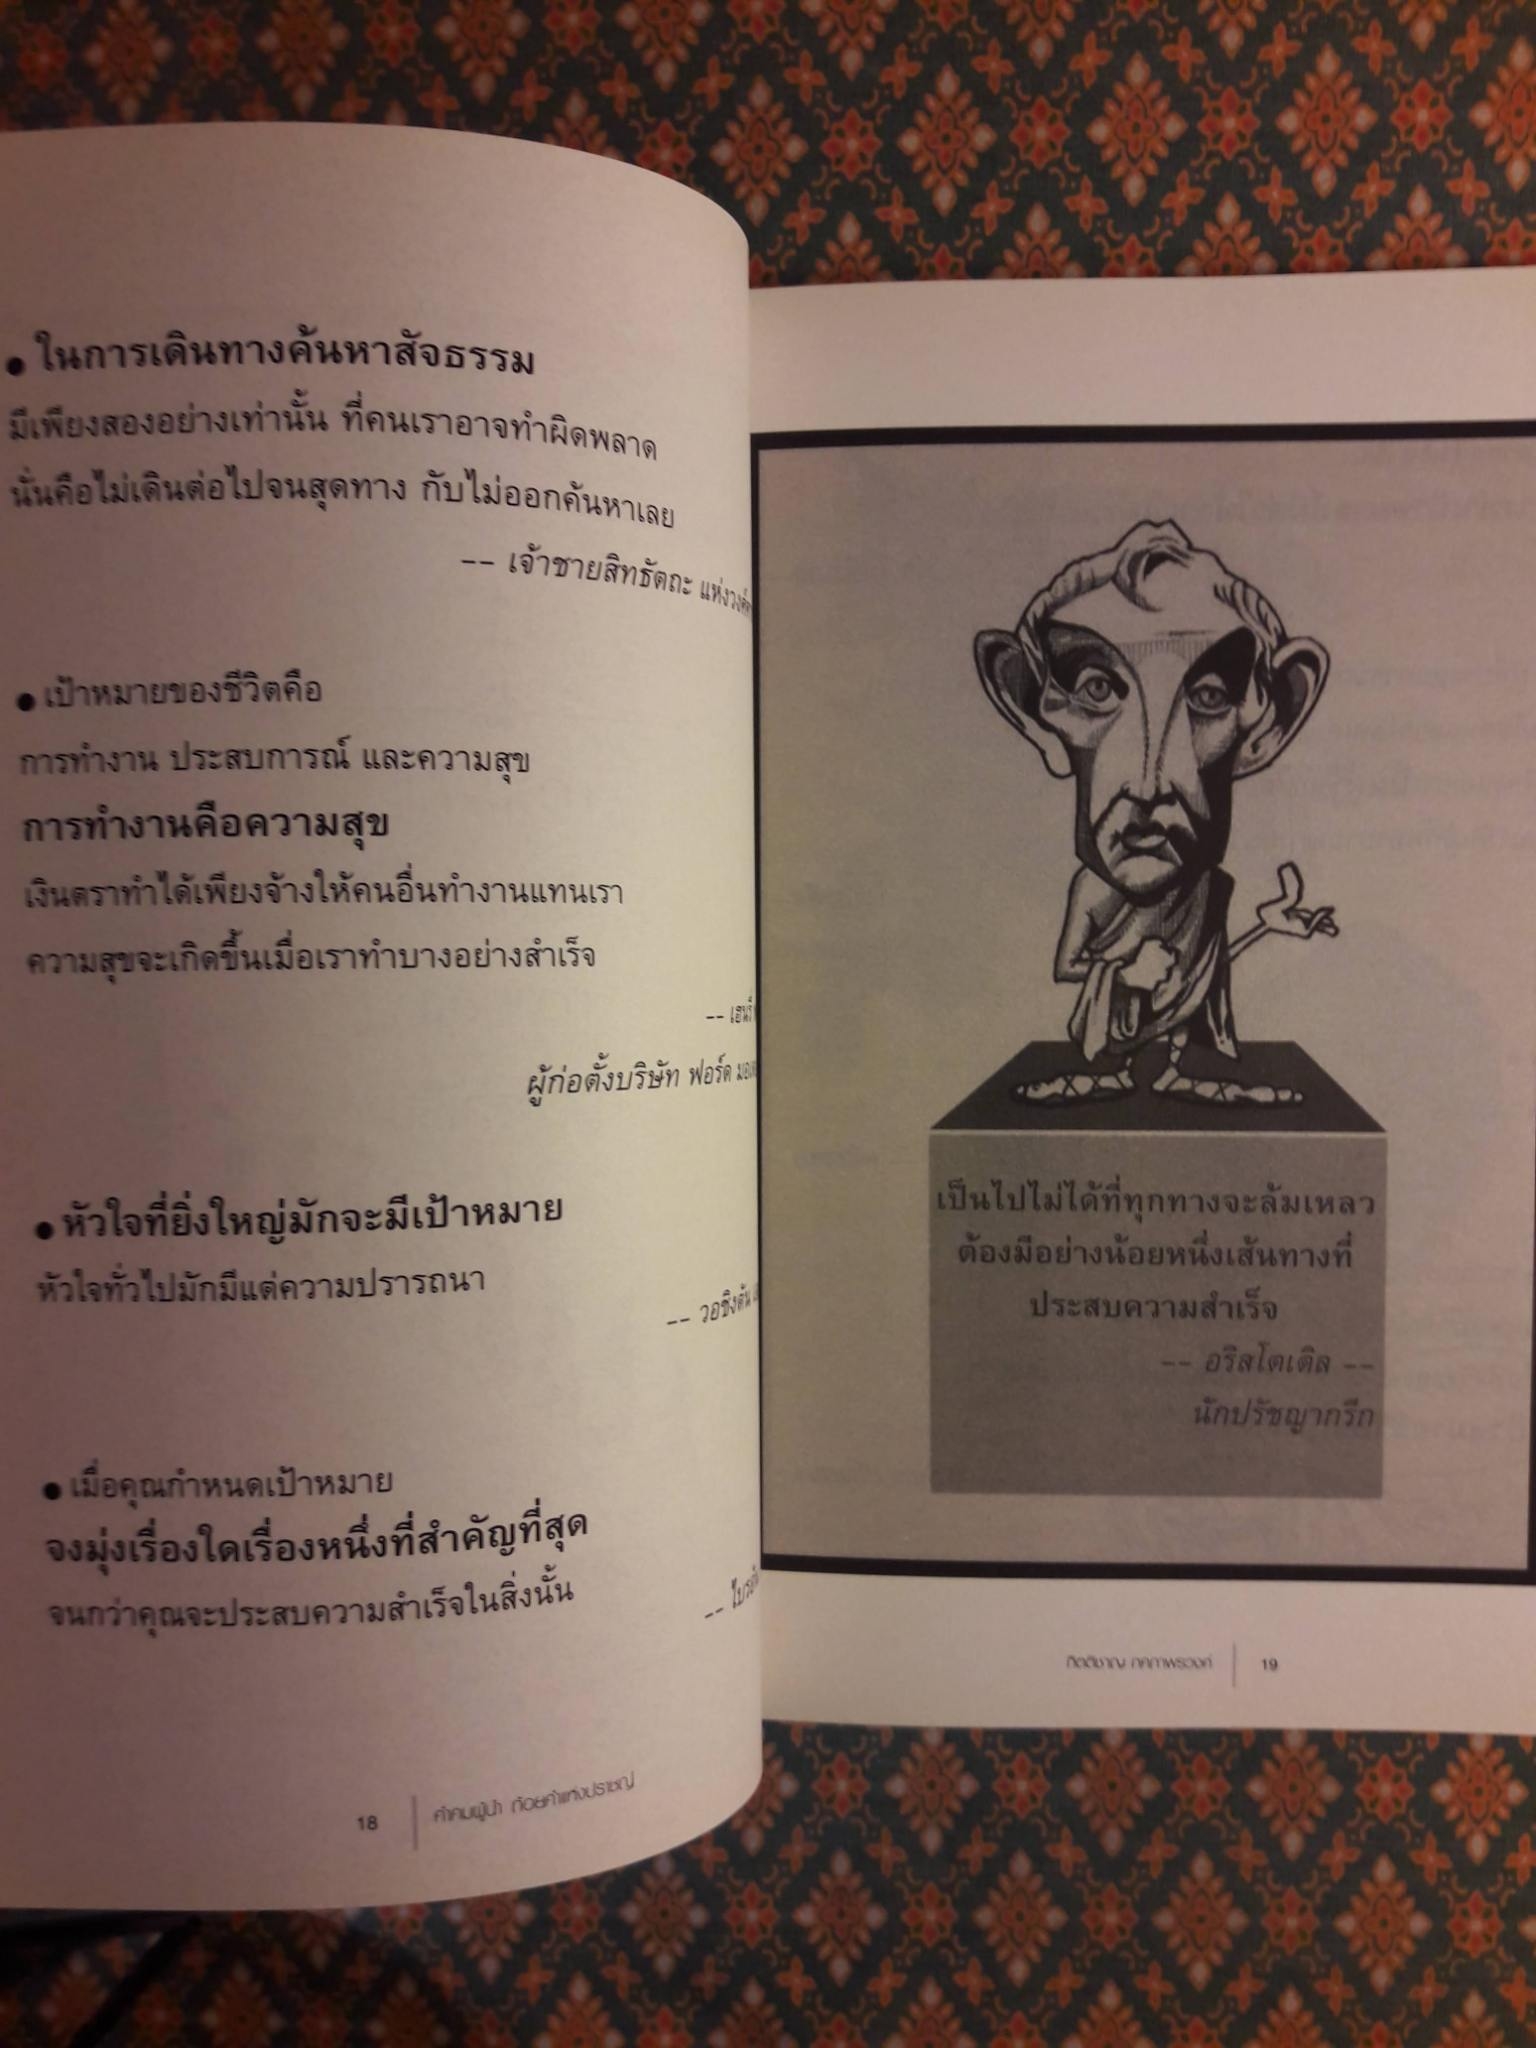 ● ในการเดินทางค้นหาสัจธรรม
มีเพียงสองอย่างเท่านั้น ที่คนเราอาจทำผิดพลาด
นั่นคือไม่เดินต่อไปจนสุดทาง กับไม่ออกค้นหาเลย
-- เจ้าชายสิทธัตถะ แห่งวงศ์
● เป้าหมายของชีวิตคือ
การทำงาน ประสบการณ์ และความสุข
การทำงานคือความสุข
เงินตราทำได้เพียงจ้างให้คนอื่นทำงานแทนเรา
ความสุขจะเกิดขึ้นเมื่อเราทำบางอย่างสำเร็จ
-- เฮนรี่
ผู้ก่อตั้งบริษัท ฟอร์ด
● หัวใจที่ยิ่งใหญ่มักจะมีเป้าหมาย
หัวใจทั่วไปมักมีแต่ความปรารถนา
-- วอชิงตัน
● เมื่อคุณกำหนดเป้าหมาย
จงมุ่งเรื่องใดเรื่องหนึ่งที่สำคัญที่สุด
จนกว่าคุณจะประสบความสำเร็จในสิ่งนั้น
-- ไบรอัน
18 | คำคมผู้นำ ถ้อยคำแห่งปราชญ์
เป็นไปไม่ได้ที่ทุกทางจะล้มเหลว
ต้องมีอย่างน้อยหนึ่งเส้นทางที่
ประสบความสำเร็จ
-- อริสโตเติล --
นักปรัชญากรีก
19